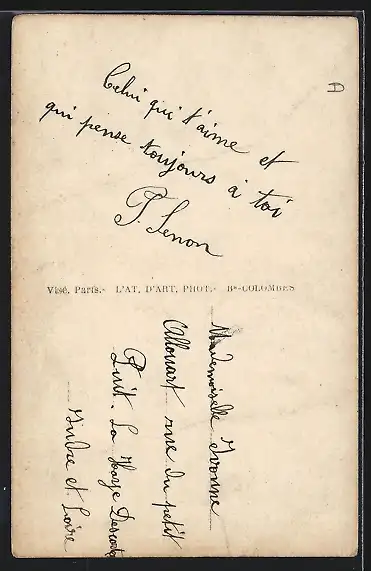 Celui qui t'aime et
qui pense toujours à toi
P. Lenon
Visé. Paris.- L'AT. D'ART. PHOT.- Bs-COLOMBES
Mademoiselle Yvonne
Allouart rue du petit
Puit. La Haye Descartes
Indre et Loire
A